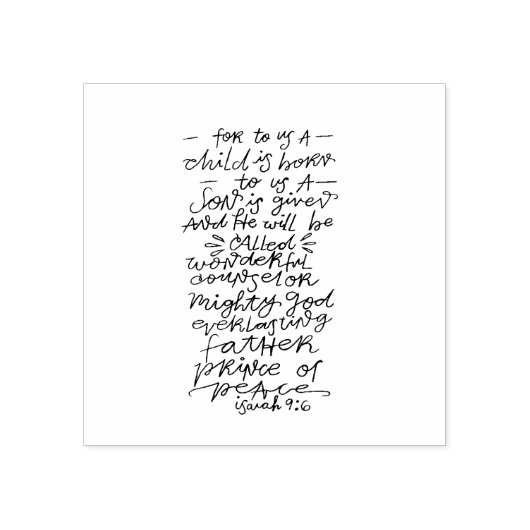 — FOR to us A —
child is born
— to us A —
SON is given
AND He will be
CALLED
wonderful
counselor
mighty god
everlasting
fatHER
prince of
peace
isaiah 9:6